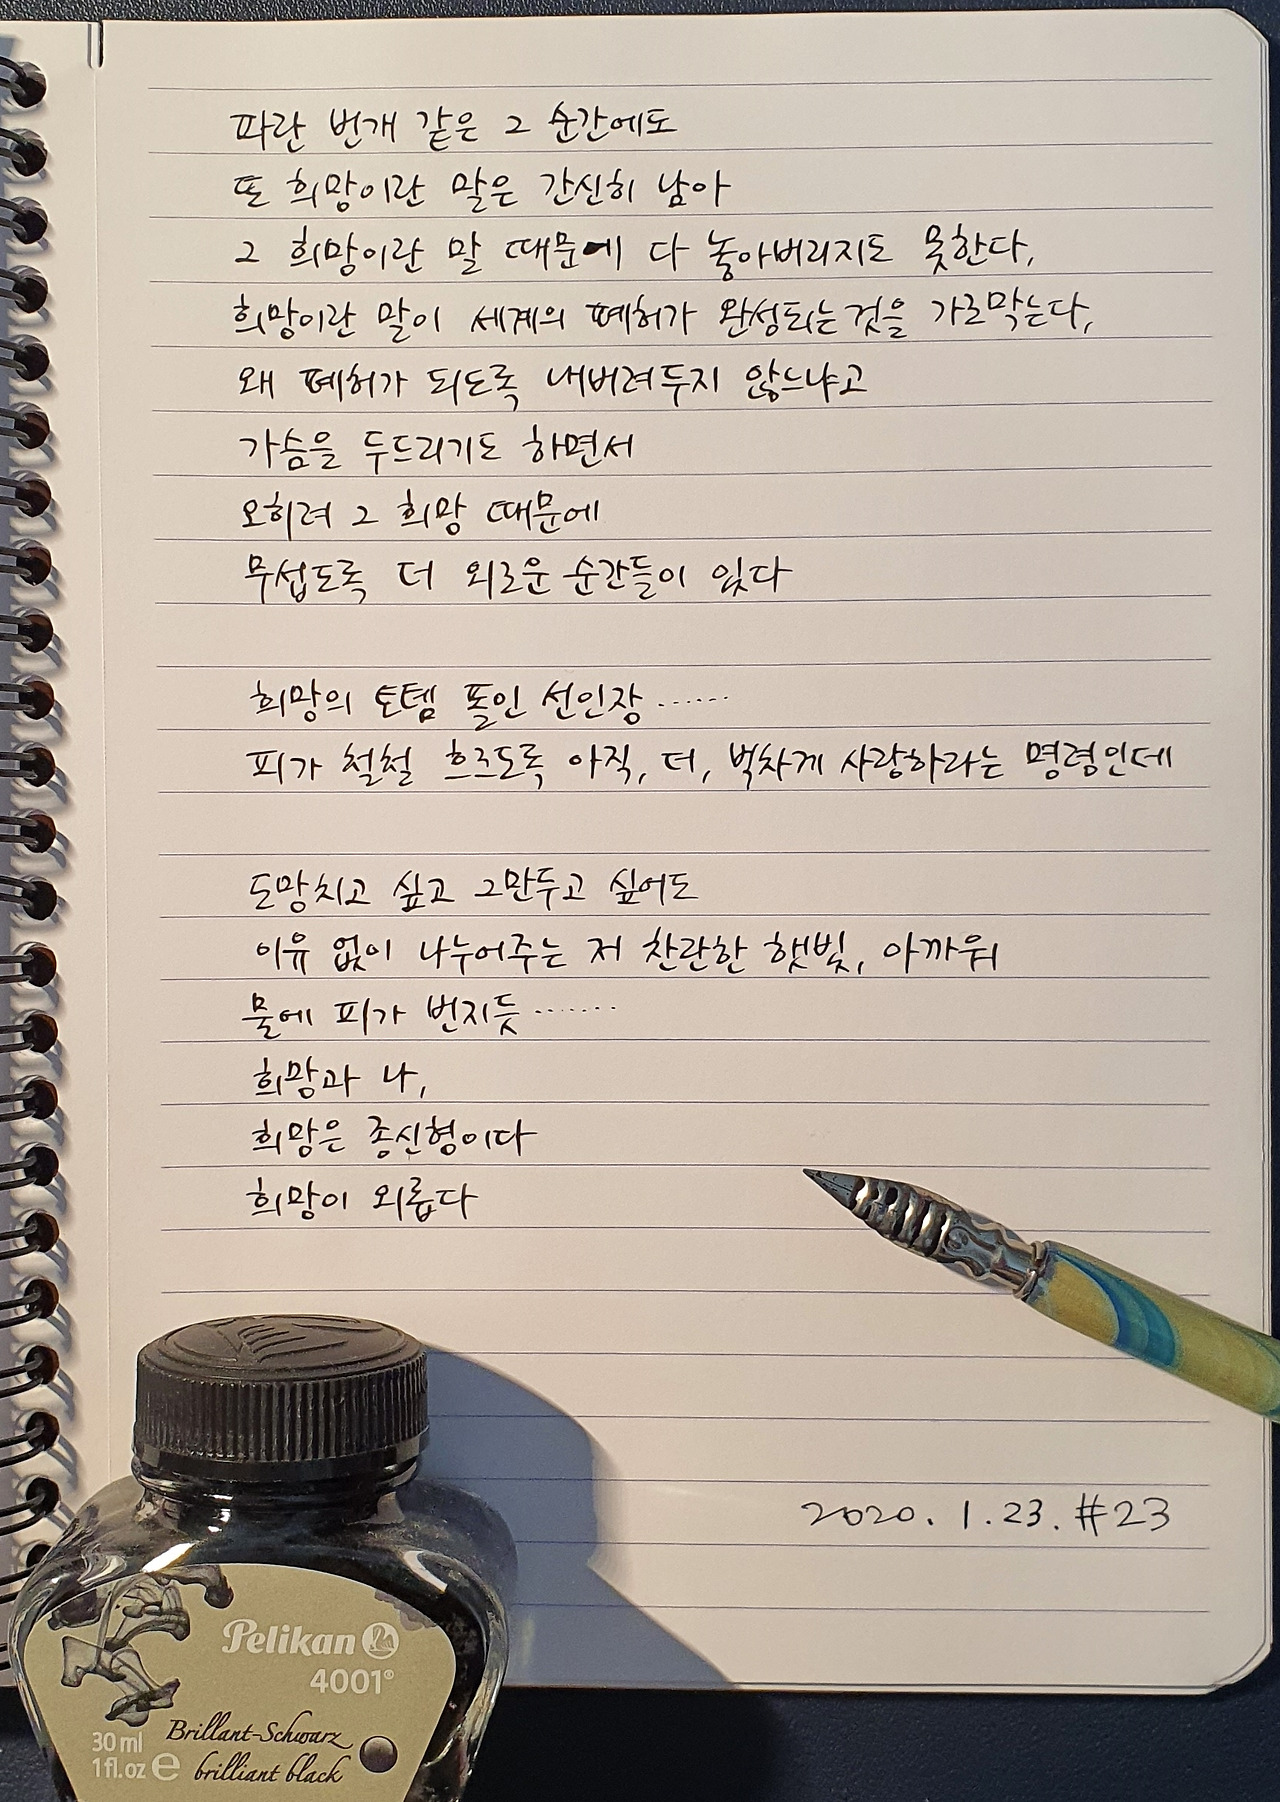 파란 번개 같은 그 순간에도
또 희망이란 말은 간신히 남아
그 희망이란 말 때문에 다 놓아버리지도 못한다,
희망이란 말이 세계의 폐허가 완성되는 것을 가로막는다,
왜 폐허가 되도록 내버려두지 않느냐고
가슴을 두드리기도 하면서
오히려 그 희망 때문에
무섭도록 더 외로운 순간들이 있다
희망의 토템 폴인 선인장……
피가 철철 흐르도록 아직, 더, 벅차게 사랑하라는 명령인데
도망치고 싶고 그만두고 싶어도
이유 없이 나누어주는 저 찬란한 햇빛, 아까워
물에 피가 번지듯……
희망과 나,
희망은 종신형이다
희망이 외롭다
2020. 1. 23. #23
Pelikan
4001®
Brillant-Schwarz
30 ml
1 fl.oz e
brilliant black